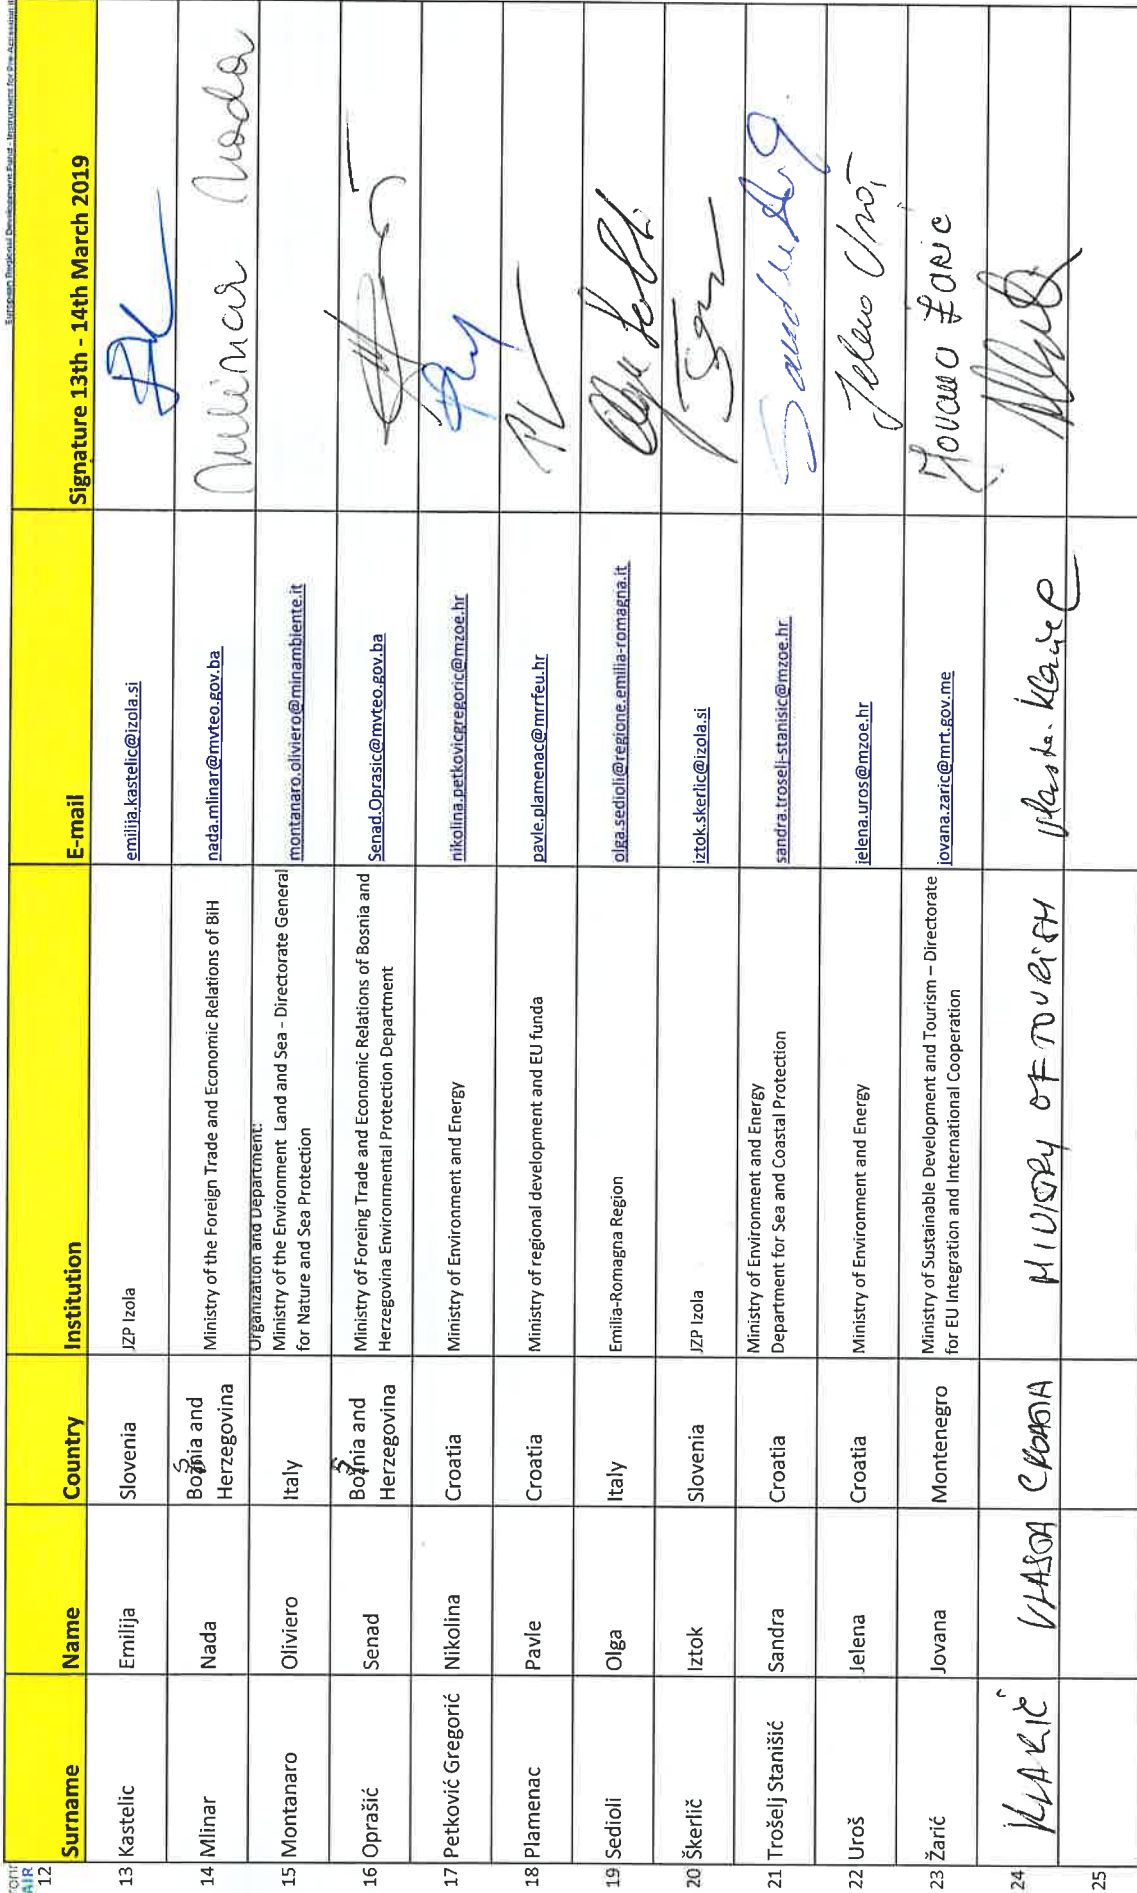 European Regional Development Fund - Instrument for Pre-Accession II
AIR
12
Surname Name Country Institution E-mail Signature 13th - 14th March 2019
13 Kastelic Emilija Slovenia JZP Izola emilija.kastelic@izola.si
14 Mlinar Nada Bosnia and Herzegovina Ministry of the Foreign Trade and Economic Relations of BiH nada.mlinar@mvteo.gov.ba Mlinar Nada
Organization and Department:
15 Montanaro Oliviero Italy Ministry of the Environment Land and Sea - Directorate General montanaro.oliviero@minambiente.it
for Nature and Sea Protection
16 Oprašić Senad Bosnia and Herzegovina Ministry of Foreing Trade and Economic Relations of Bosnia and Senad.Oprasic@mvteo.gov.ba
Herzegovina Environmental Protection Department
17 Petković Gregorić Nikolina Croatia Ministry of Environment and Energy nikolina.petkovicgregoric@mzoe.hr
18 Plamenac Pavle Croatia Ministry of regional development and EU funda pavle.plamenac@mrrfeu.hr
19 Sedioli Olga Italy Emilia-Romagna Region olga.sedioli@regione.emilia-romagna.it
20 Škerlič Iztok Slovenia JZP Izola iztok.skerlic@izola.si
21 Trošelj Stanišić Sandra Croatia Ministry of Environment and Energy sandra.troselj-stanisic@mzoe.hr
Department for Sea and Coastal Protection
22 Uroš Jelena Croatia Ministry of Environment and Energy jelena.uros@mzoe.hr Jelena Uroš
23 Žarić Jovana Montenegro Ministry of Sustainable Development and Tourism – Directorate jovana.zaric@mrt.gov.me Jovana Žarić
for EU Integration and International Cooperation
24 KLARIĆ VLASTA CROATIA MINISTRY OF TOURISM vlasta.klaric@
25